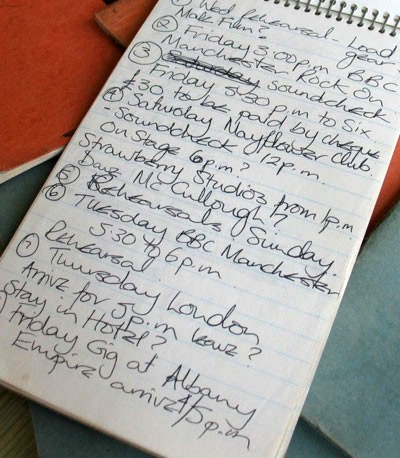 ① Wed rehearsed Load
Make Film? gear
② Friday 3.00p.m. BBC
Manchester Rock On
③ Saturday Soundcheck
Friday 5.30 p.m to Six
£30 to be paid by cheque
④ Saturday Mayflower Club.
Soundcheck 12p.m.
On Stage 6p.m?
Strawberry Studios from 1p.m
Dave McCullough?
⑤ Rehearsals Sunday.
⑥ Tuesday BBC Manchester
5.30 to 6p.m
⑦ Rehearsal.
Thursday London
Arrive for 5p.m
Stay in Hotel?
Friday Gig at Albany
Empire arrive 4/5p.m